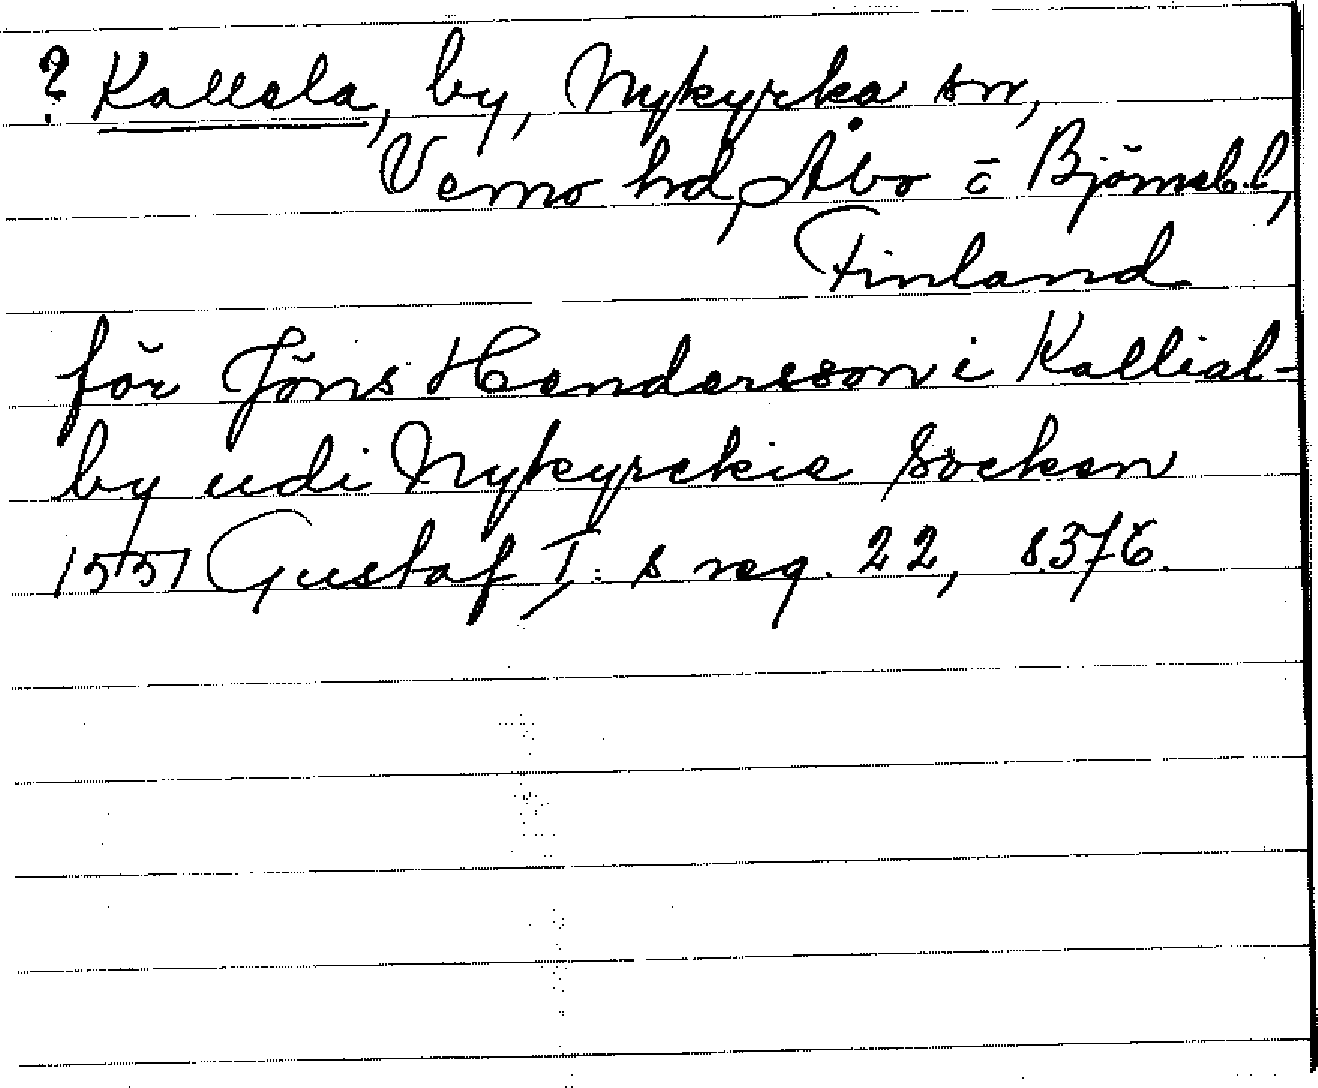 ? Kallela, by, Nykyrka sn,
Vemo hd, Åbo c̄ Björneb. l,
Finland
för Jöns Hendersson i Kallial-
by udi Nykyrckie socken
1551 Gustaf I:s reg. 22, s. 376.